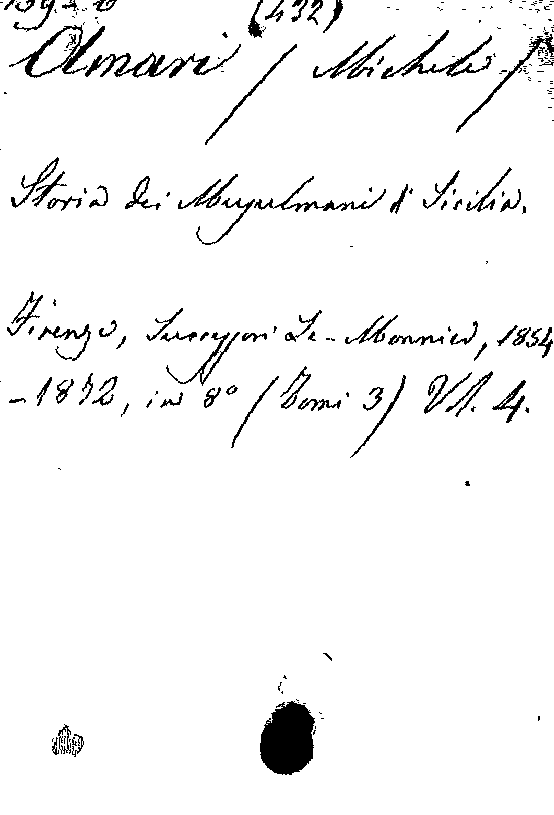 (432)
Amari / Michele /
Storia dei Musulmani di Sicilia.
Firenze, Successori Le-Monnier, 1854
-1872, in 8° (Tomi 3) Vol. 4.